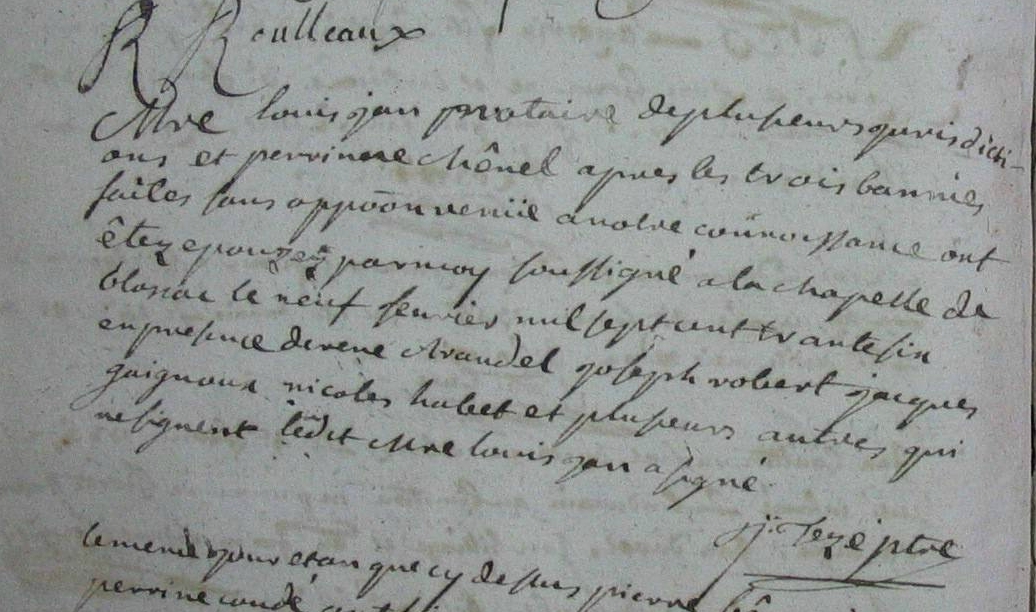 R Roulleaux
Mre louis jan pnotaire de plusieurs jurisdicti-
ons et perrinne chênel apres les trois bannies
faites sans oppoõn venüe a notre connoissance ont
êtez epouzez par moy soussigné a la chapelle de
blosac le neuf fevrier mil sept cent trante six
en presence de rené Arandel joseph robert jacques
gaignoux nicolas hubet et plusieurs autres qui
ne signent ledit Mre louis jan a signé
Tezé ptre
le meme jour et an que cy dessus pierre
perrine coudé